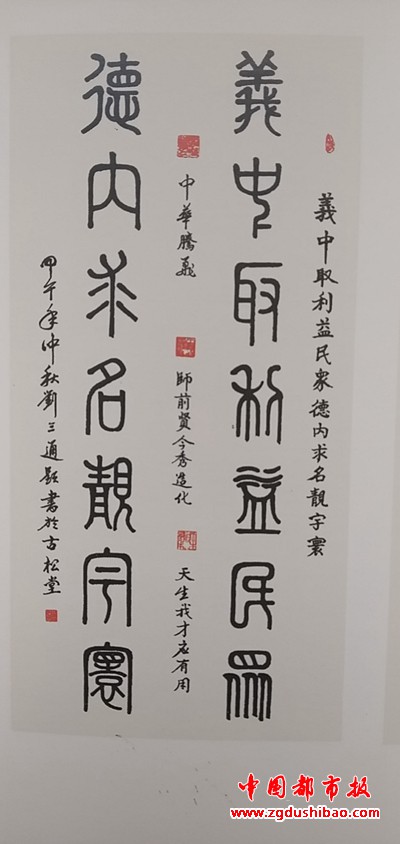 義中取利益民衆德内求名靚宇寰
義中取利益民眾
中華騰飛
師前賢今秀造化
天生我才应有用
德内求名靚宇寰
甲午年仲秋劉三通題書於古松堂
中国都市报
www.zgdushibao.com